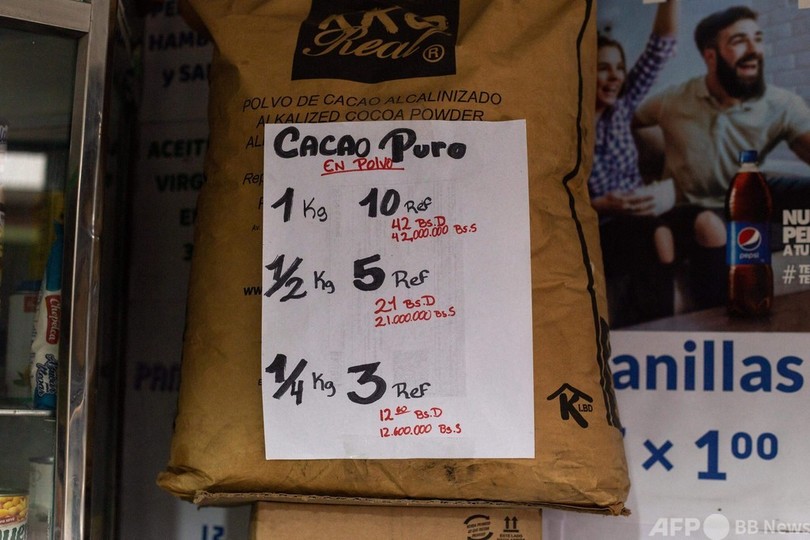 Real®
POLVO DE CACAO ALCALINIZADO
ALKALIZED COCOA POWDER
CACAO PURO
EN POLVO
1 Kg 10 Ref
42 Bs.D
42,000.000 Bs.S
1/2 Kg 5 Ref
21 Bs.D
21.000.000 Bs.S
1/4 Kg 3 Ref
12 60 Bs.D
12.600.000 Bs.S
K LBD
HAMB
y SA
ACEIT
VIRG
E
3
PAN
www
pepsi
NU
PE
A TU
#TE
TE
anillas
× 1⁰⁰
AFP BB News